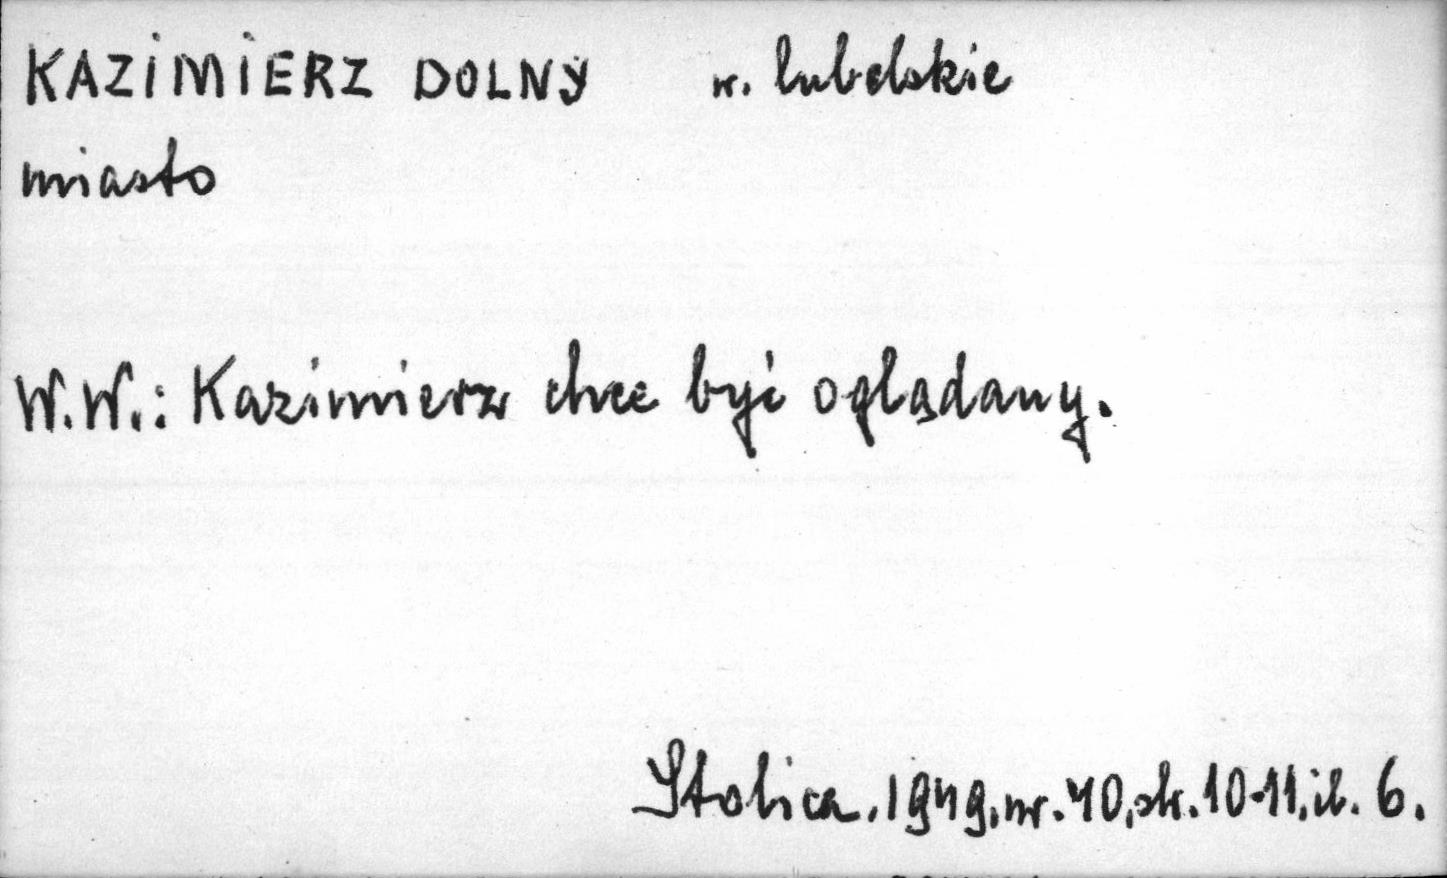 KAZIMIERZ DOLNY w. lubelskie
miasto
W.W.: Kazimierz chce być oglądany.
Stolica. 1949. nr. 40, str. 10-11, il. 6.